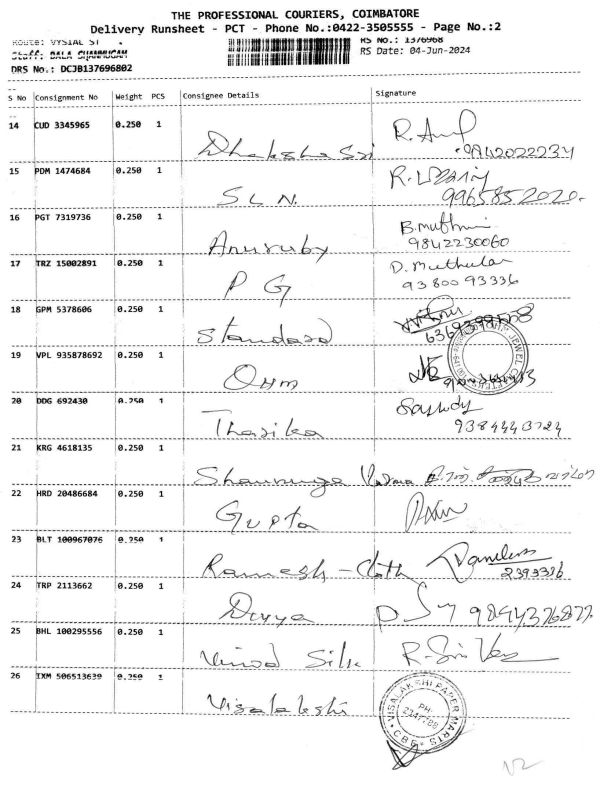 THE PROFESSIONAL COURIERS, COIMBATORE
Delivery Runsheet - PCT - Phone No.:0422-3505555 - Page No.:2
Route: VYSIAL ST RS No.: 1376968
Staff: BALA SHANMUGAM RS Date: 04-Jun-2024
DRS No.: DCJB137696802
S No Consignment No Weight PCS Consignee Details Signature
14 CUD 3345965 0.250 1
Dhaksha Sri 9842022234
15 PDM 1474684 0.250 1
S L N. 9965852020.
16 PGT 7319736 0.250 1 B.muthu
Anuruby 9842230060
17 TRZ 15002891 0.250 1 D. Muthular
P G 9380093336
18 GPM 5378606 0.250 1
Standard
19 VPL 935878692 0.250 1
Ohm
20 DDG 692430 0.250 1
Tharika 9384443724
21 KRG 4618135 0.250 1
Shanmuga
22 HRD 20486684 0.250 1
Gupta
23 BLT 100967076 0.250 1
Ramesh - Cloth 2393326
24 TRP 2113662 0.250 1
Divya
25 BHL 100295556 0.250 1
Vinod Silk
26 IXM 506513639 0.250 1
Visalakshi
VISALAKSHI PAPER MARTS
PH:
2347788
CBE